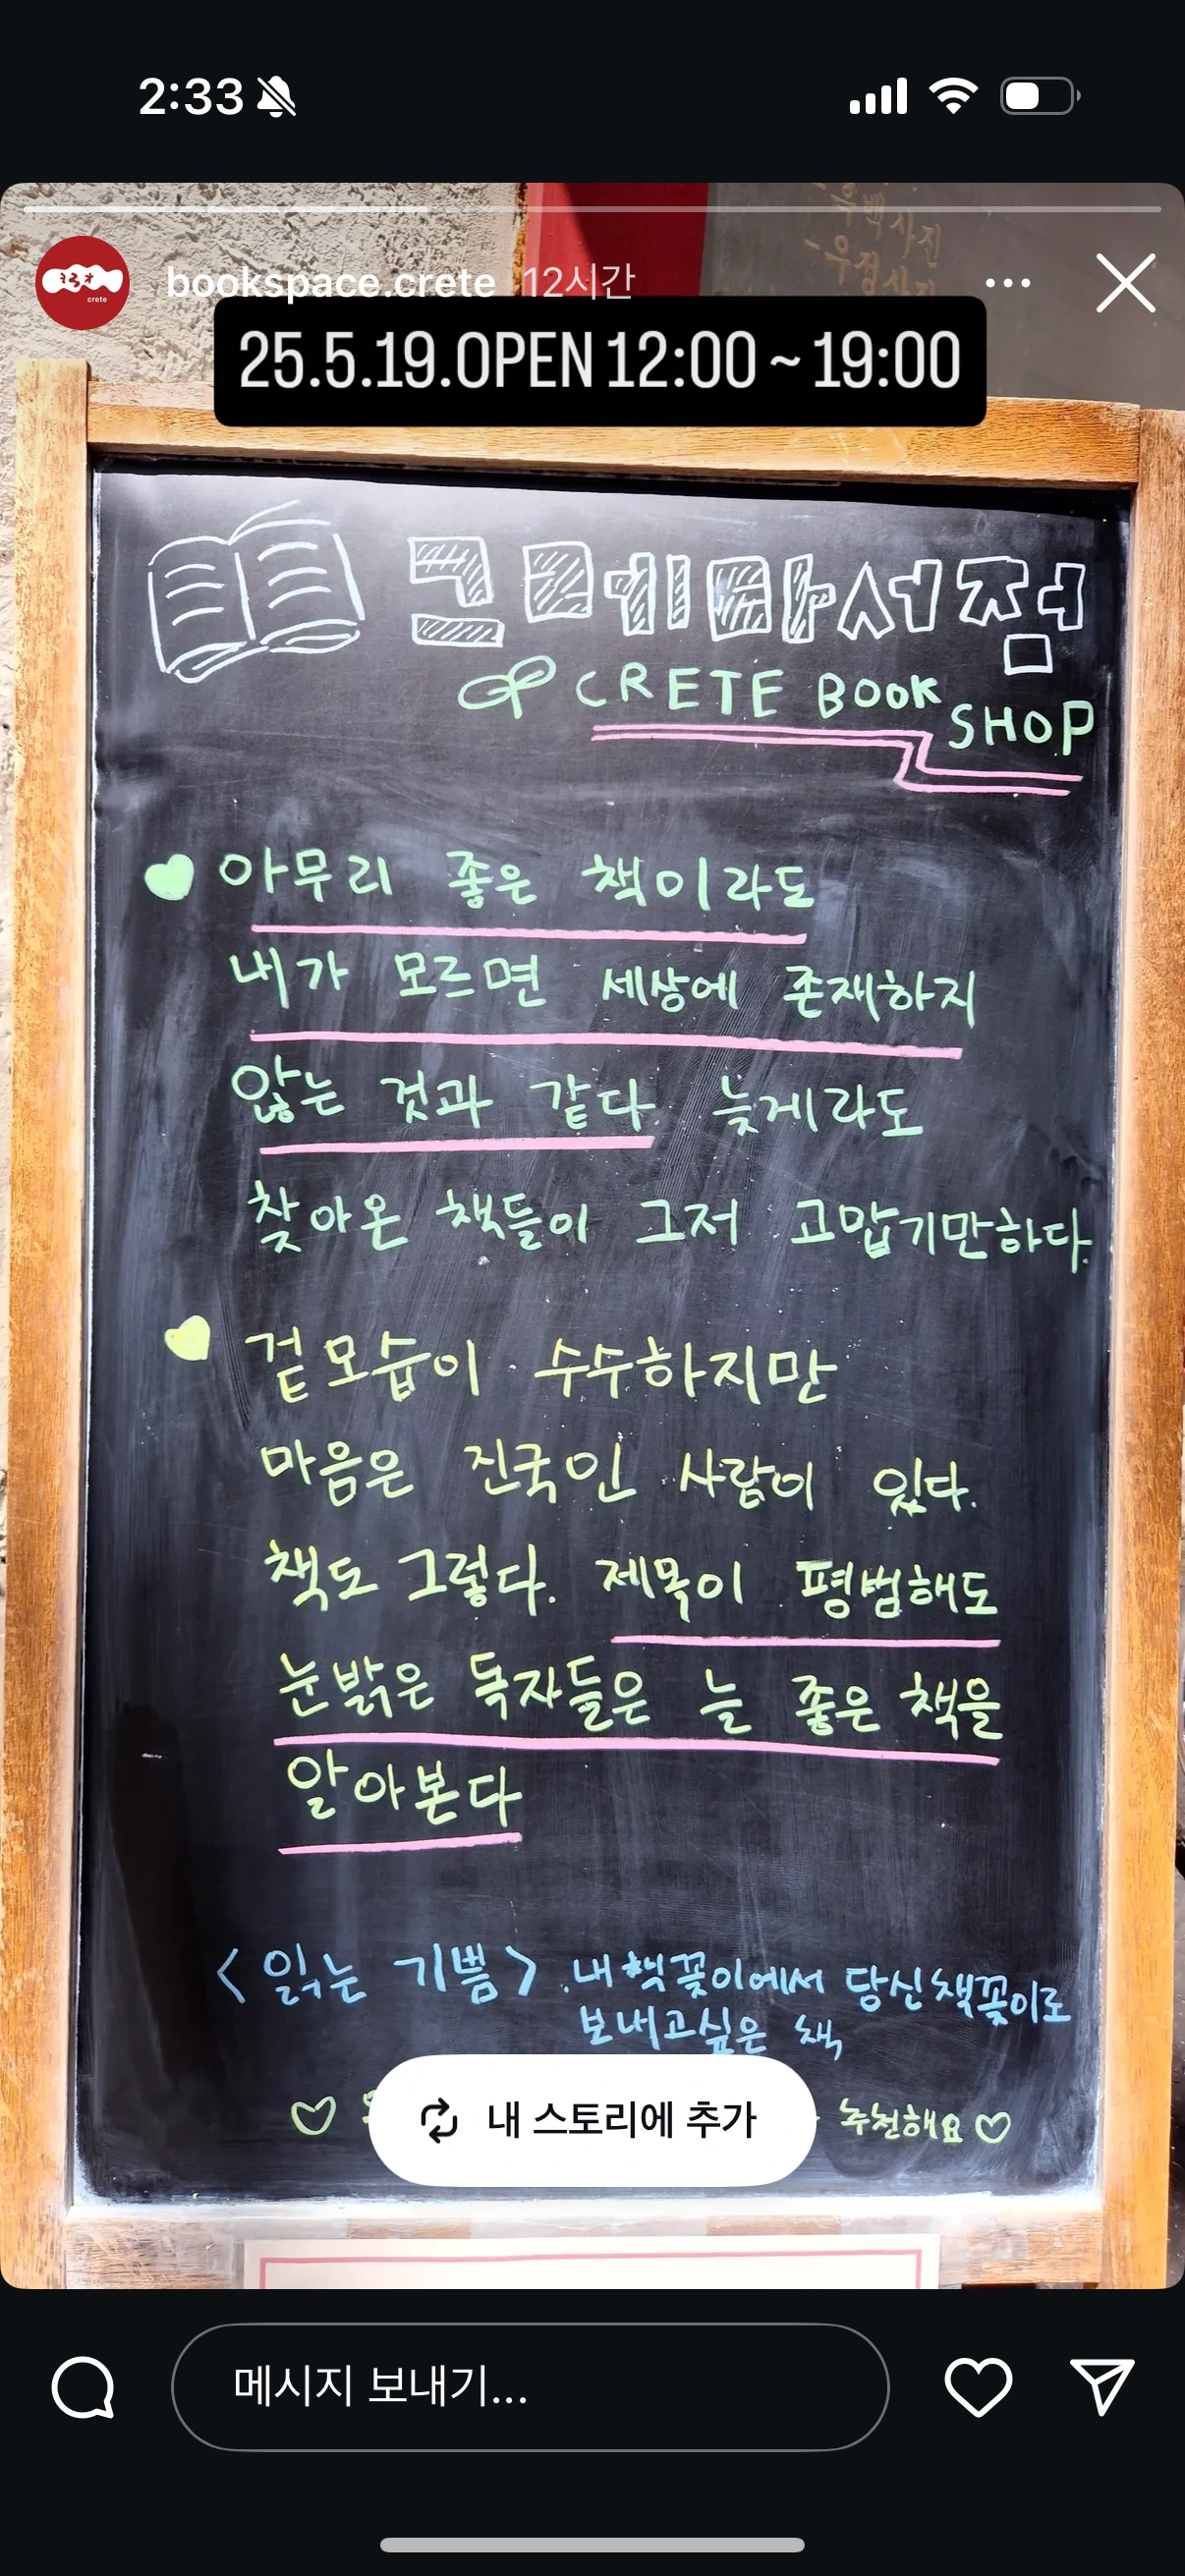 2:33
크레타
crete
bookspace.crete 12시간
흑백사진
우정사진
25.5.19.OPEN 12:00 ~ 19:00
크레타서점
CRETE BOOK
SHOP
아무리 좋은 책이라도
내가 모르면 세상에 존재하지
않는 것과 같다. 늦게라도
찾아온 책들이 그저 고맙기만하다.
겉모습이 수수하지만
마음은 진국인 사람이 있다.
책도 그렇다. 제목이 평범해도
눈밝은 독자들은 늘 좋은 책을
알아본다
<읽는 기쁨> 내 책꽂이에서 당신 책꽂이로
보내고싶은 책
추천해요
내 스토리에 추가
메시지 보내기...